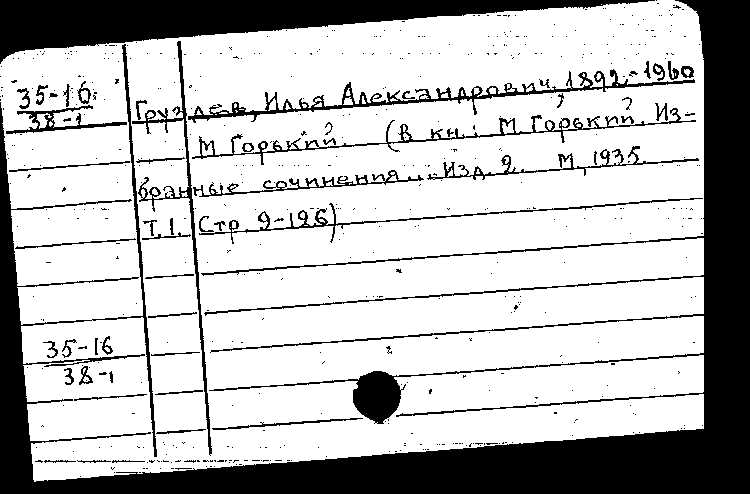 35-16
38-1
Груздев, Илья Александрович. 1892-1960
М. Горький. (В кн.: М. Горький. Из-
бранные сочинения... Изд. 2. М., 1935.
Т. 1. Стр. 9-126).
35-16
38-1